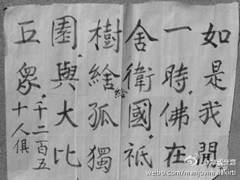 如是我聞
一時佛在
舍衛國祇
樹給孤獨
園與大比
丘眾千二百五
十人俱